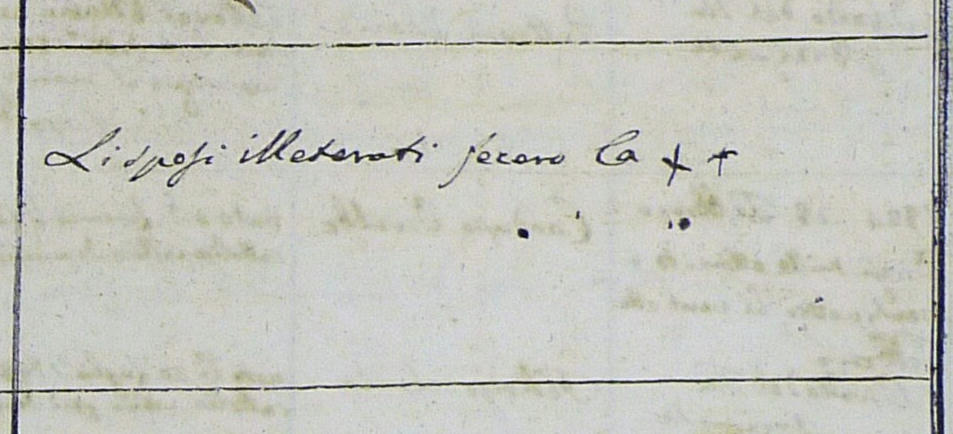 Li sposi illeterati fecero la + +